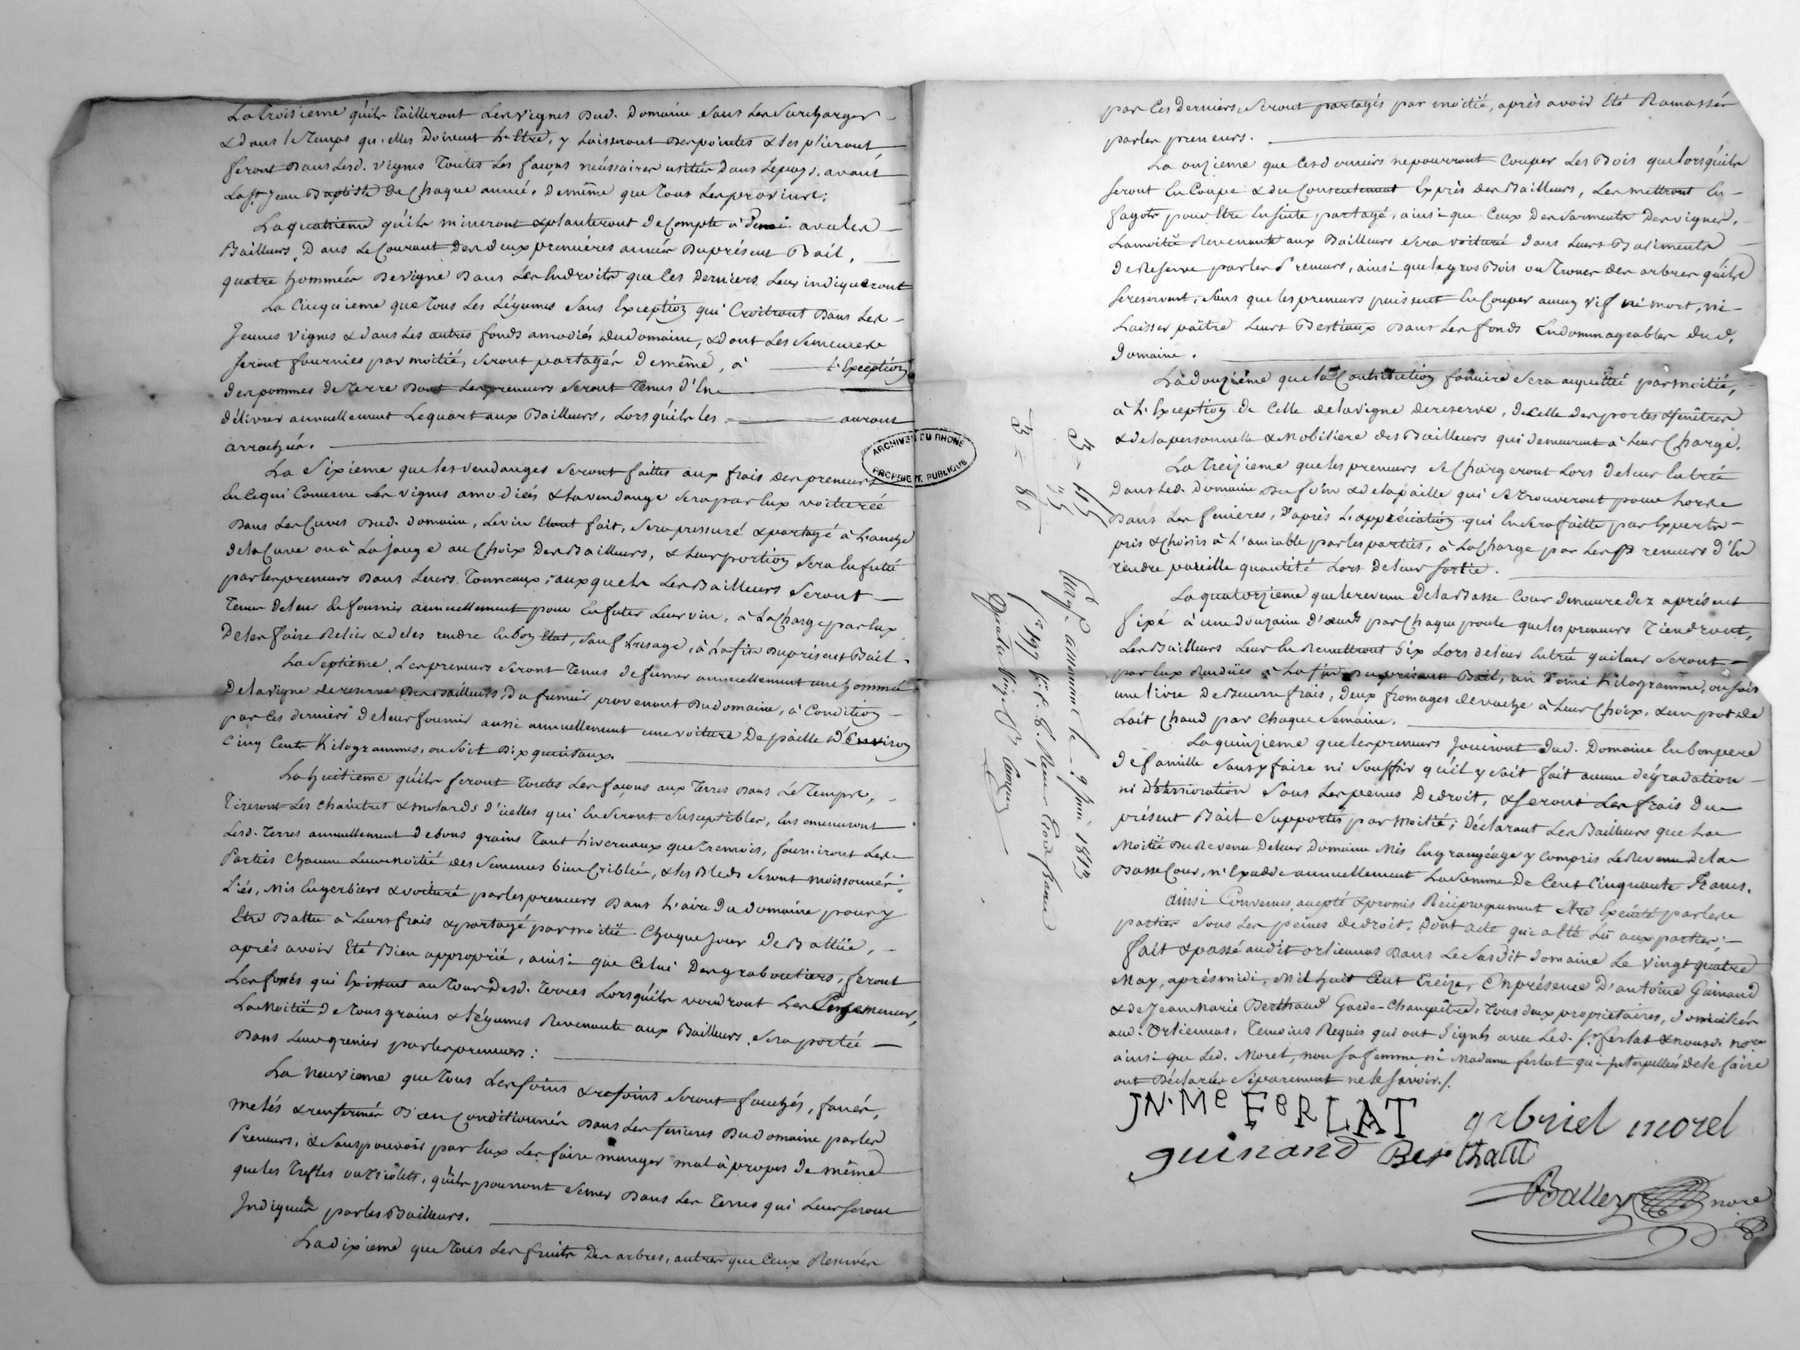 La Troisieme qu'ils Tailleront les vignes Dud. Domaine sans les surcharger
& dans le Temps qu'elles doivent L'Etre, y laisseront des pointes & les plieront
feront Dans lesd. vignes Toutes les façons nécessaires usitées dans le pays, avant
La St Jean Baptiste de Chaque année, de même que Tous les provins;
La quatrieme qu'ils mineront & planteront de Compte à Demi avec les
Bailleurs, Dans le Courant des deux premières années du présent Bail,
quatre hommées de vigne Dans les Endroits que les Derniers Leur indiqueront
La Cinquieme que Tous les Légumes sans Exception qui Croitront Dans les
Jeunes vignes & dans les autres fonds amodiés dudomaine, & dont les semences
seront fournies par moitié, seront partagés de même, à L'Exception
des pommes de Terre Dont les preneurs seront Tenus d'En
délivrer annuellement Le quart aux Bailleurs, Lorsqu'ils les auront
arrachées.
La Sixieme que les vendanges seront faittes aux frais des preneurs
En Ce qui Concerne les vignes amodiées & la vendange sera par Eux voiturée
Dans les Cuves Dud. domaine, le vin Etant fait, sera pressuré & partagé à L'anche
de la Cuve ou à La jauge au Choix des Bailleurs, & Leur portion sera Enfuté
par les preneurs Dans Leurs Tonneaux, auxquels les Bailleurs seront
Tenus de leur En fournir annuellement pour Enfuter Leur vin, à La Charge par Eux
De les faire Relier & de les rendre En bon Etat, sauf L'usage, à La fin du présent Bail.
La Septieme, Les preneurs seront Tenus de fumer annuellement une hommée
De la vigne de reserve Des Bailleurs, Du fumier provenant Du domaine, à Condition
par Ces derniers de leur fournir aussi annuellement une voiture De paille d'Environ
Cinq Cents Kilogrammes, ou soit Dix quintaux.
La huitieme qu'ils feront Toutes Les façons aux Terres Dans Le Temps,
Tireront Les Chaintres & molards d'icelles qui En seront susceptibles, Ensemenceront
Lesd. Terres annuellement de bons grains Tant hivernaux que Tremois, fourniront Les
Parties Chacune Leur moitié des semences bien Criblées, & les Bleds seront moissonnés,
Liés, mis En gerbiers & voiturés par les preneurs Dans L'aire du domaine pour y
Etre Battu à Leurs frais & partagé par moitié Chaque Jour de Battée,
après avoir Eté Bien approprié, ainsi que Celui Des graboutiers, feront
Les fossés qui Existent au Tour Desd. Terres Lorsqu'ils voudront Les Ensemencer,
La Moitié de Tous grains & Légumes Revenante aux Bailleurs, sera portée
Dans Leur grenier par les preneurs:
La neuvieme que Tous Les foins & refoins seront fauchés, fanés,
metés & renfermés Bien Conditionnés Dans les fenieres Du domaine par les
Preneurs, & sans pouvoir par Eux Les faire manger mal à propos de même
que les Trefles ou violets, qu'ils pourront semer Dans Les Terres qui Leur seront
Indiquées par les Bailleurs.
La dixieme que Tous Les fruits Des arbres, autres que Ceux Reservés
ARCHIVES DU RHONE
PROPRIETE PUBLIQUE
par Ces Derniers, seront partagés par moitié, après avoir Eté Ramassés
par les preneurs.
La onzieme que Ces derniers ne pourront Couper Les Bois que lorsqu'ils
seront En Coupe & du Consentement Exprès des Bailleurs, Les mettront En
fagots pour Etre Ensuite partagés, ainsi que Ceux Des sarments Des vignes,
La moitié Revenante aux Bailleurs sera voituré dans Leurs Batiments
de Reserve par les Preneurs, ainsi que le gros Bois ou Trones des arbres qu'ils
se reservent, sans que les preneurs puissent En Couper aucun vif ni mort, ni
Laisser paître Leurs Bestiaux Dans les fonds Endommageables dud.
Domaine.
La douzieme que la Contribution fonciere sera acquittée par moitié,
à L'Exception de Celle de la vigne de reserve, de Celle des portes & fenêtres
& de la personnelle & Mobiliere des Bailleurs qui demeurent à Leur Charge.
La Treizieme que les preneurs se Chargeront Lors de leur Entrée
Dans led. Domaine Du foin & de la paille qui se trouveront pour Lors
Dans Les fenieres, D'après L'appréciation qui En sera faitte par Experts
pris & choisis à L'amiable par les parties, à La Charge par Les Preneurs d'En
rendre pareille quantité Lors de leur sortie.
La quatorzieme que le revenu de la Basse Cour demeure dez àprésent
fixé à une douzaine d'œufs par Chaque poule que les preneurs Tiendront,
Les Bailleurs Leur En Remettront six Lors de leur Entrée qui leur seront
par Eux Rendües à La fin du présent Bail, un demi Kilogramme, ou soit
une livre De Beurre frais, deux fromages de vache à Leur Choix, & un pot de
Lait Chaud par Chaque semaine.
La quinzieme que les preneurs Jouiront dud. Domaine En bon pere
de famille sans y faire ni souffrir qu'il y soit fait aucune dégradation
ni détérioration sous Les peines De droit, & seront Les frais du
présent Bail supportés par Moitié; Déclarant Les Bailleurs que La
Moitié Du Revenu De leur Domaine Mis En grangéage y Compris Le Revenu de la
Basse Cour, n'Excede annuellement La somme De Cent Cinquante Francs.
ainsi Convenu, accepté & promis Réciproquement Etre Exécuté par les
parties sous Les peines de droit, Dont acte qui a été Lu aux parties;
fait & passé audit orlienas Dans Le susdit domaine Le vingt quatre
May, après midi, Mil huit Cent Treize, En présence D'antoine Guinand
& de Jean Marie Berthaud Garde-Champêtre, Tous deux propriétaires, domiciliés
aud. Orlienas, Témoins Requis qui ont signés avec Led. sr. ferlat & nousd. nore
ainsi que Led. Morel, non sa femme ni Madame ferlat qui interpellées de le faire
ont Déclarées séparement ne le savoir./.
JN. Me FeRLAT gabriel morel
guinand Berthaud
Balley nore
3 = 45
35
3 = 80
juin 1813